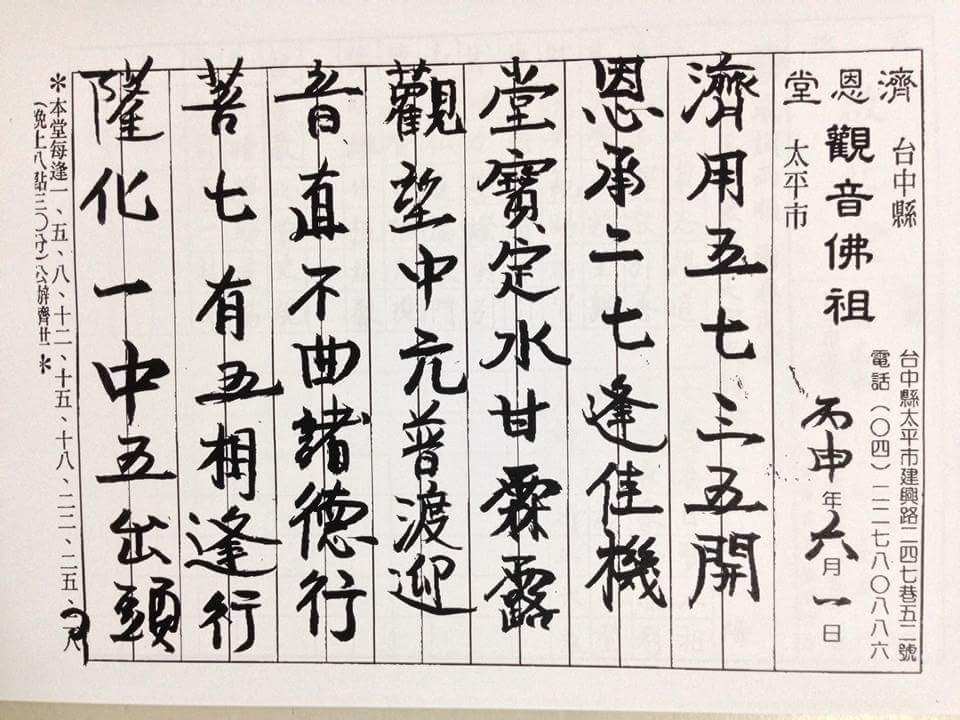 濟恩堂
台中縣
太平市
觀音佛祖
台中縣太平市建興路二四七巷五二號
電話（〇四）二二七八〇八八六
丙申年六月一日
濟用五七三五開
恩承二七逢佳機
堂寶定水甘霖露
觀望中元普渡迎
音直不曲諸德行
菩七有五相逢行
薩化一中五出頭
＊本堂每逢一、五、八、十二、十五、十八、二二、二五、二八
（晚上八點三〇分）公辦濟世＊